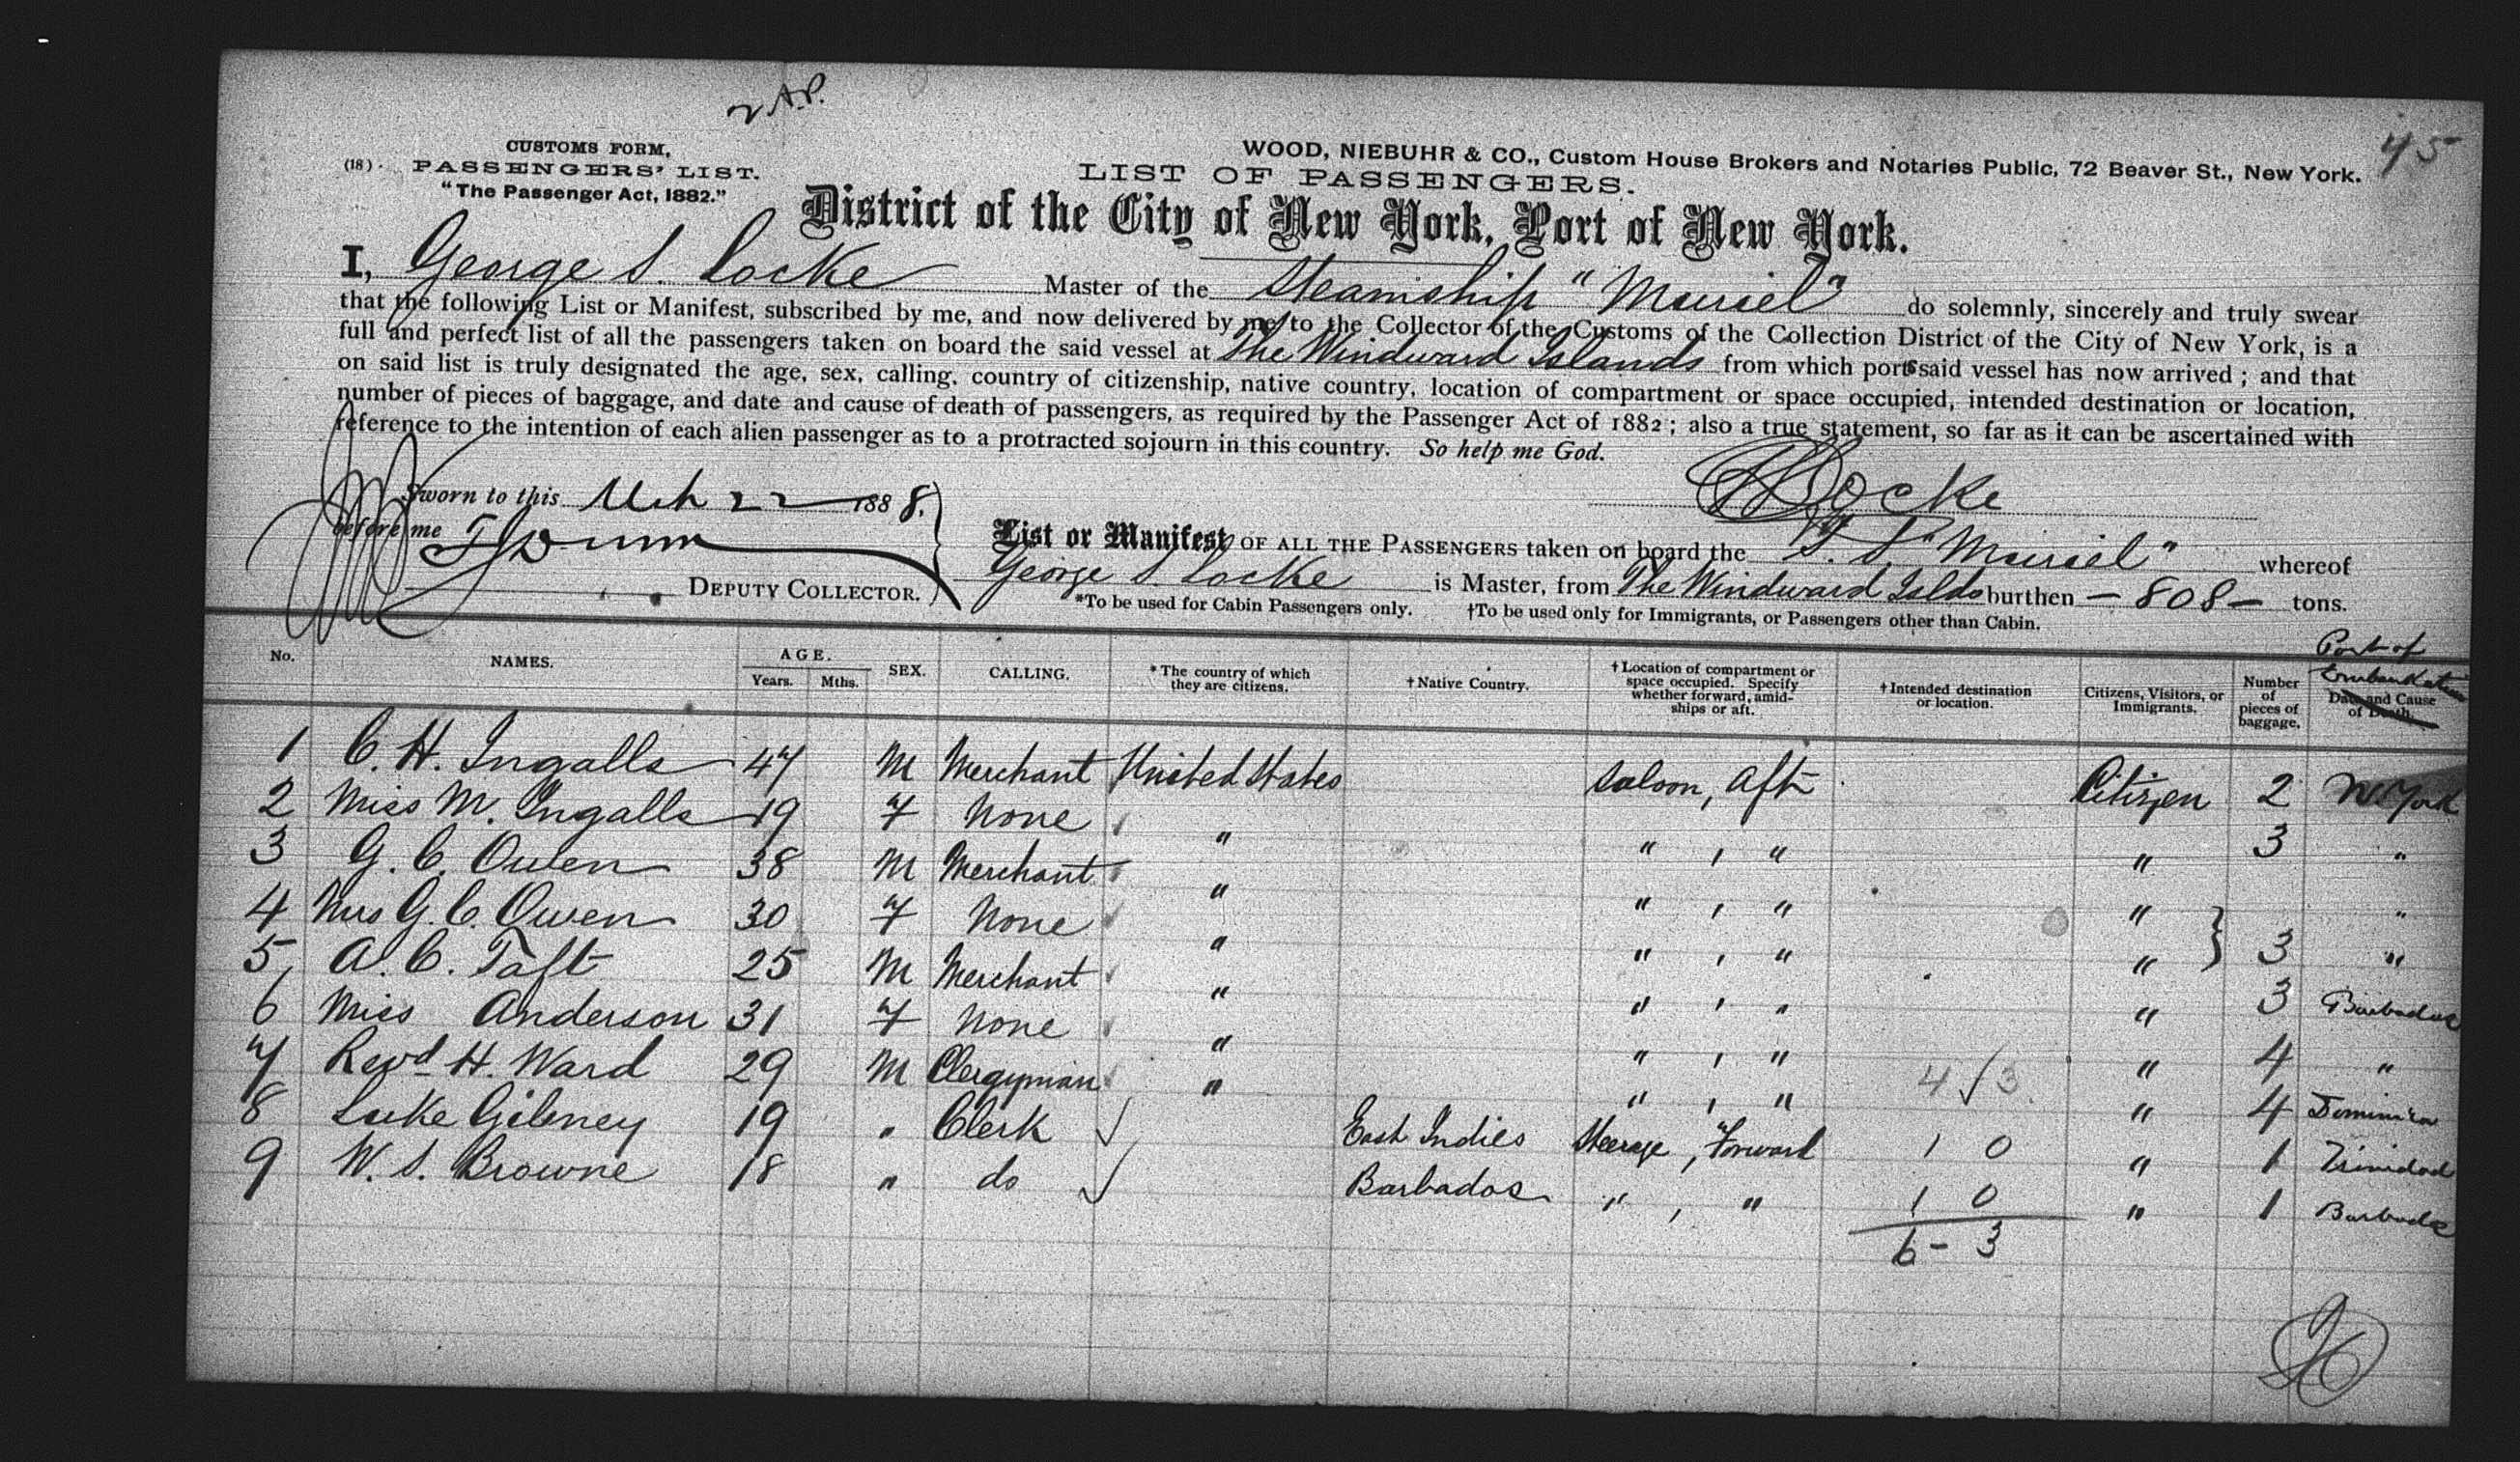 2 A.P.
45
CUSTOMS FORM,
(18) PASSENGERS' LIST.
"The Passenger Act, 1882."
WOOD, NIEBUHR & CO., Custom House Brokers and Notaries Public, 72 Beaver St., New York.
LIST OF PASSENGERS.
District of the City of New York, Port of New York.
I, George S. Locke Master of the Steamship "Muriel" do solemnly, sincerely and truly swear
that the following List or Manifest, subscribed by me, and now delivered by me to the Collector of the Customs of the Collection District of the City of New York, is a
full and perfect list of all the passengers taken on board the said vessel at The Windward Islands from which ports said vessel has now arrived; and that
on said list is truly designated the age, sex, calling, country of citizenship, native country, location of compartment or space occupied, intended destination or location,
number of pieces of baggage, and date and cause of death of passengers, as required by the Passenger Act of 1882; also a true statement, so far as it can be ascertained with
reference to the intention of each alien passenger as to a protracted sojourn in this country. So help me God.
Locke
Sworn to this Mch 22 1888.
before me
DEPUTY COLLECTOR.
List or Manifest OF ALL THE PASSENGERS taken on board the S.S. "Muriel" whereof
George S. Locke is Master, from The Windward Islds burthen - 808 - tons.
*To be used for Cabin Passengers only. †To be used only for Immigrants, or Passengers other than Cabin.
No. NAMES. AGE. Years. Mths. SEX. CALLING. *The country of which they are citizens. †Native Country. †Location of compartment or space occupied. Specify whether forward, amidships or aft. †Intended destination or location. Citizens, Visitors, or Immigrants. Number of pieces of baggage. Date and Cause of Death. Port of Embarkation
1 C. H. Ingalls 47 M Merchant United States Saloon, Aft Citizen 2 N. York
2 Miss M. Ingalls 19 F None " " , " " 3 "
3 G. C. Owen 38 M Merchant " " , " " "
4 Mrs G. C. Owen 30 F None " " , " " } 3 "
5 A. C. Taft 25 M Merchant " " , " " 3 Barbados
6 Miss Anderson 31 F None " " , " " 4 "
7 Revd H. Ward 29 M Clergyman " " , " 4 √ 3 " 4 Dominica
8 Luke Gibney 19 " Clerk ✓ East Indies Steerage, Forward 1 0 " 1 Trinidad
9 W. S. Browne 18 " do ✓ Barbados " , " 1 0 " 1 Barbados
6 - 3